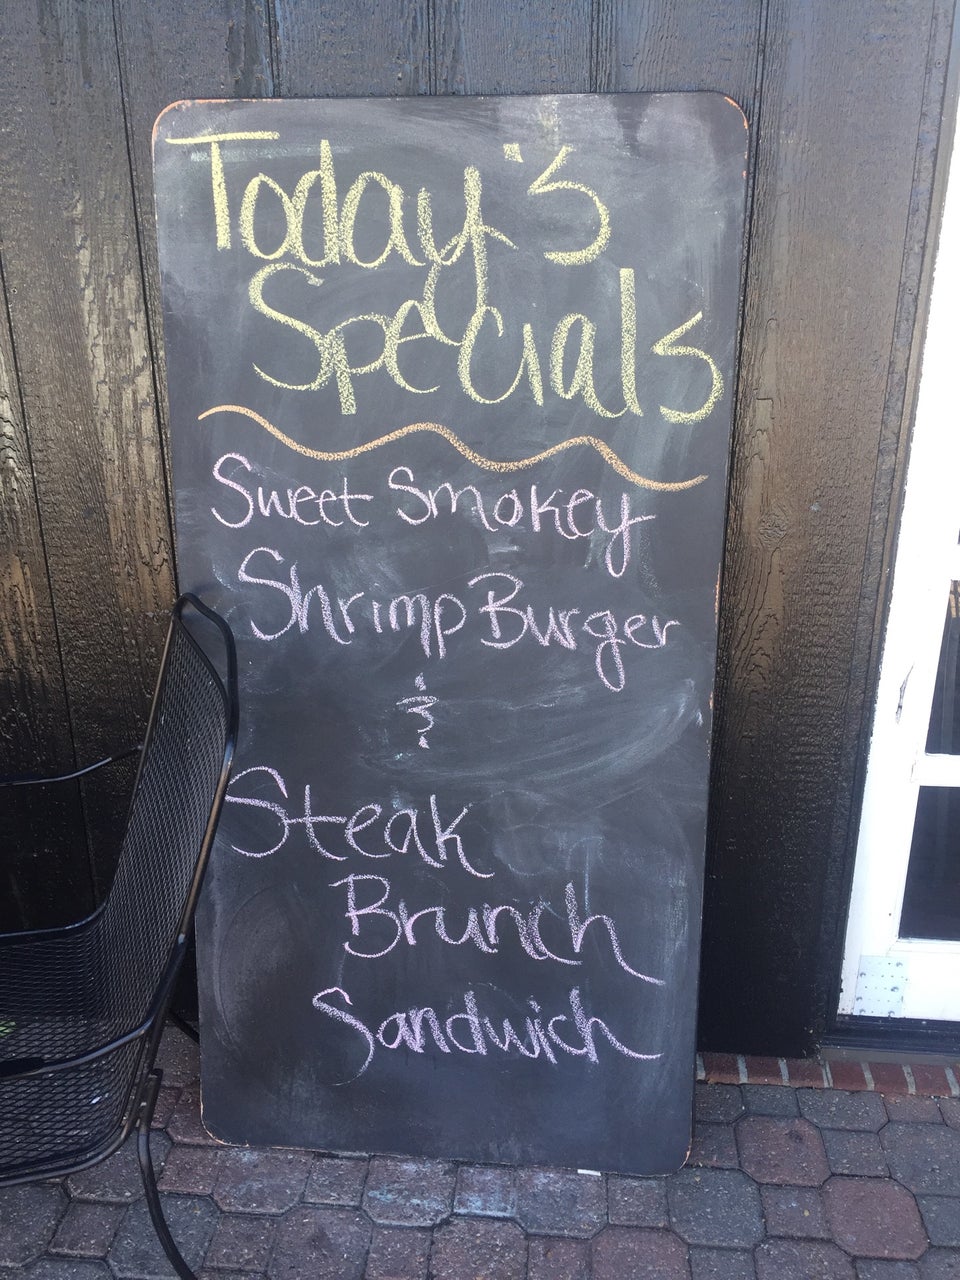 Today's
Specials
Sweet Smokey
Shrimp Burger
&
Steak
Brunch
Sandwich